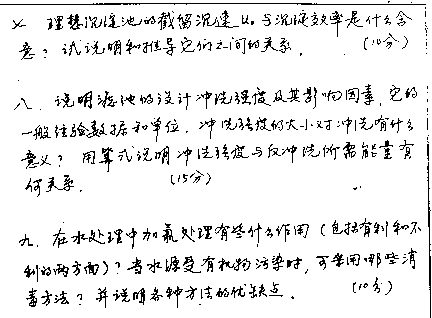 理想沉淀池的截留沉速 u₀ 与沉淀效率是什么含
意？试说明和推导它们之间的关系. (10分)
八、说明滤池的设计冲洗强度及其影响因素, 它的
一般经验数据和单位. 冲洗强度的大小对冲洗有什么
意义? 用算式说明冲洗强度与反冲洗所需能量有
何关系. (15分)
九、在水处理中加氯处理有些什么作用 (包括有利和不
利的两方面)? 当水源受有机物污染时, 可采用哪些消
毒方法? 并说明各种方法的优缺点. (10分)